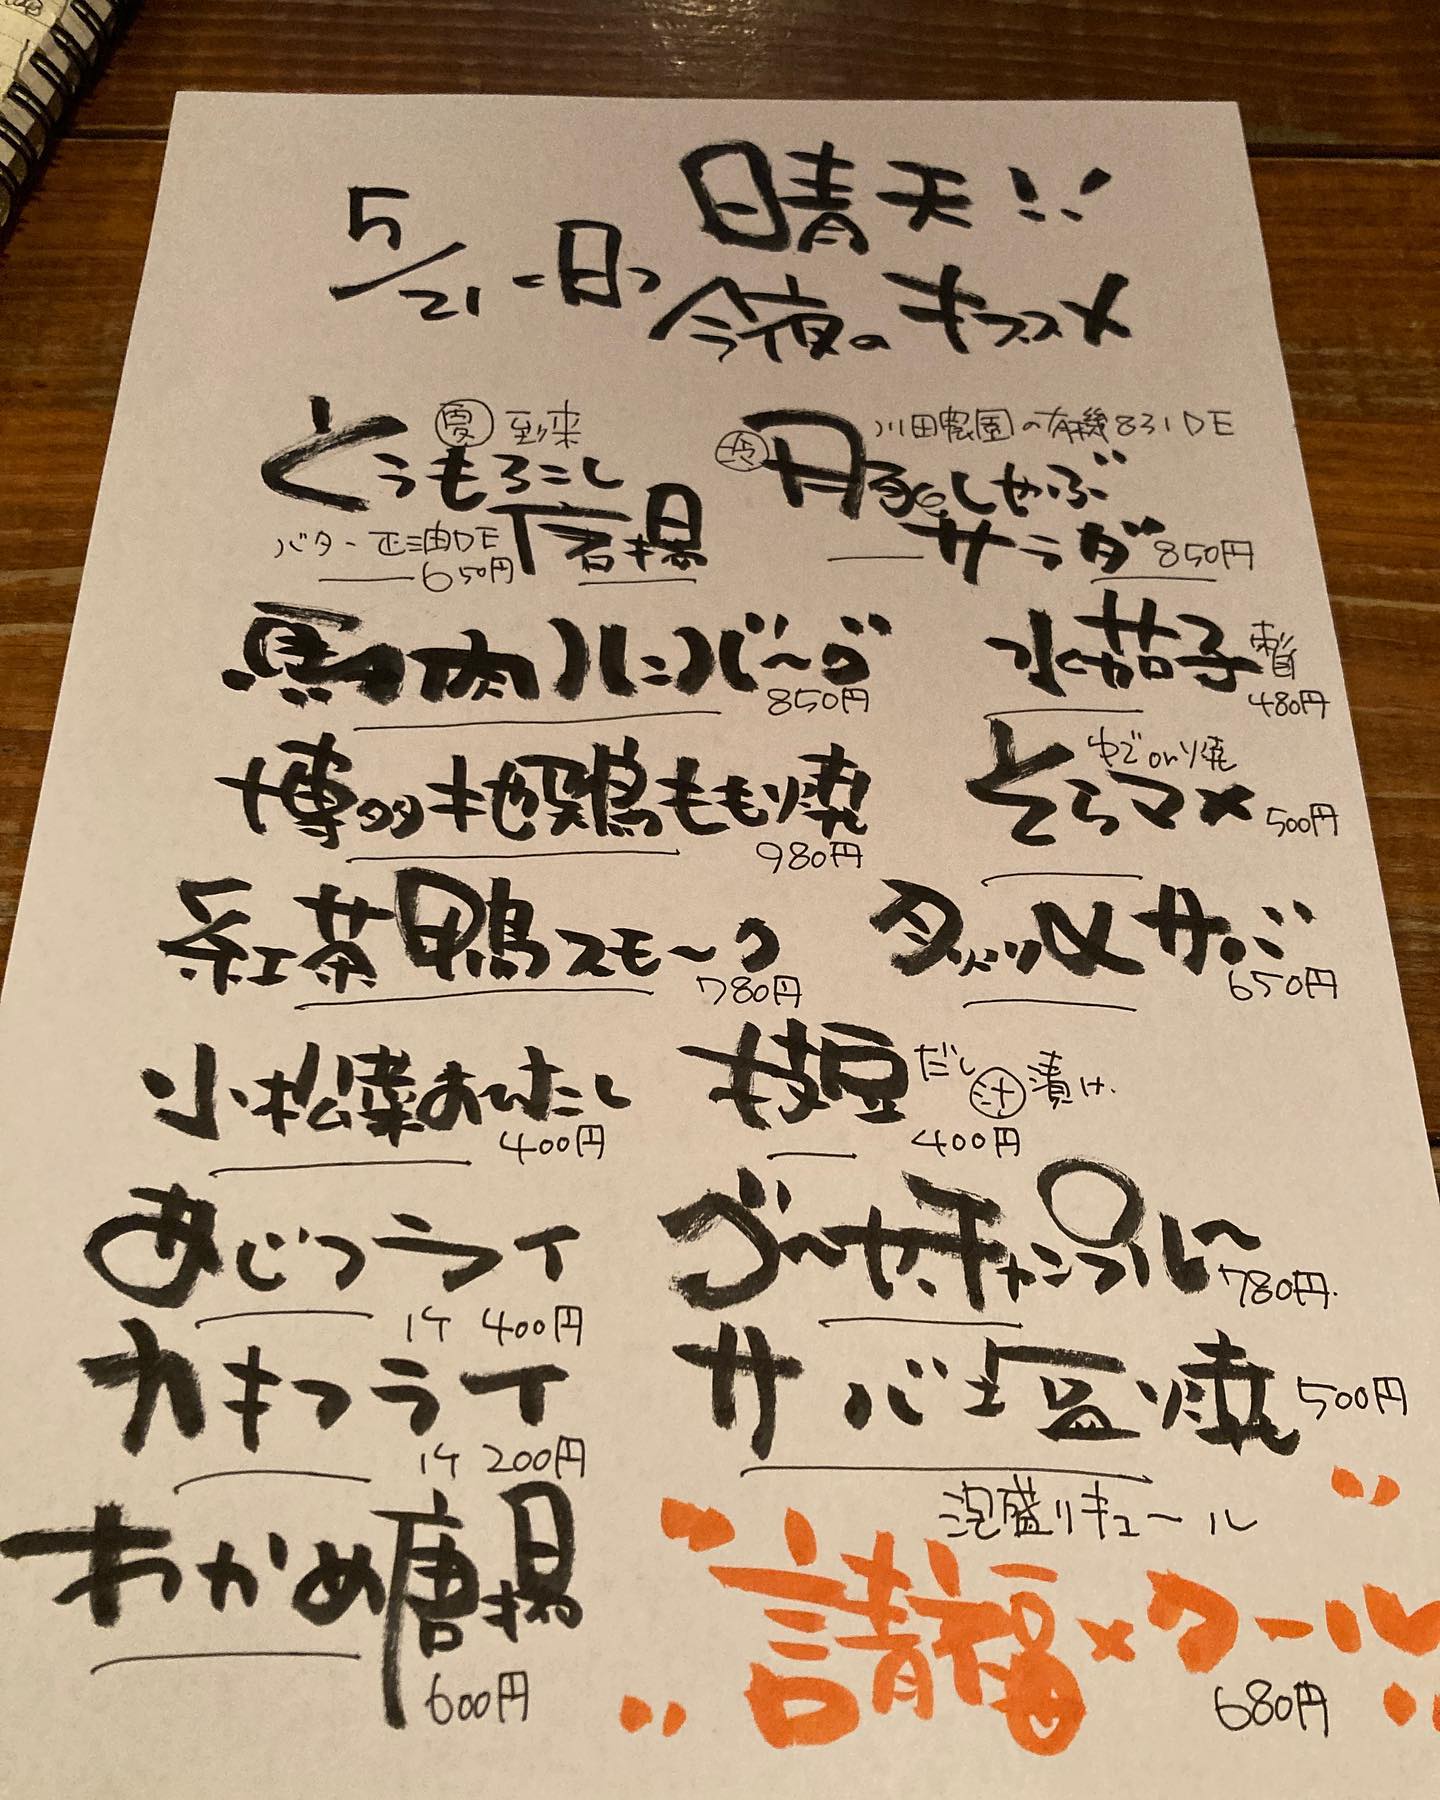 晴天!!
5/21(日)
今夜のオススメ
夏 到来
とうもろこし
唐揚
バター正油DE
650円
川田農園の有機831DE
冷 豚しゃぶ
サラダ 850円
馬肉ハンバーグ
850円
水茄子
480円
博多地鶏もも焼
980円
ゆでor焼
そらマメ 500円
紅茶鴨スモーク
780円
サバ
650円
小松菜おひたし
400円
枝豆 だし汁漬け
400円
あじフライ
1ケ 400円
ゴーヤチャンプルー
780円
カキフライ
1ケ 200円
サバ塩焼 500円
わかめ唐揚
600円
泡盛リキュール
請福×クール
680円